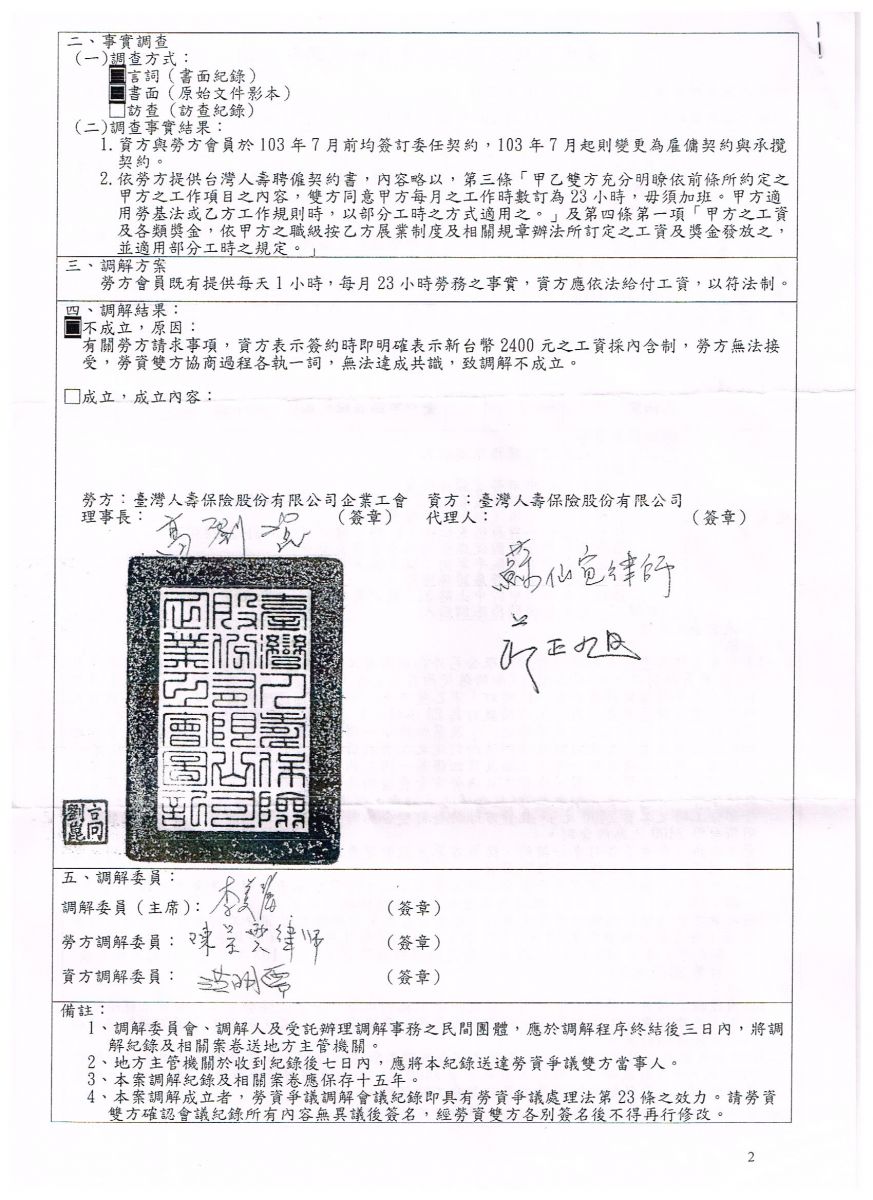 二、事實調查
(一)調查方式：
■言詞（書面紀錄）
■書面（原始文件影本）
□訪查（訪查紀錄）
(二)調查事實結果：
1.資方與勞方會員於103年7月前均簽訂委任契約，103年7月起則變更為雇傭契約與承攬
契約。
2.依勞方提供台灣人壽聘僱契約書，內容略以，第三條「甲乙雙方充分明瞭依前條所約定之
甲方之工作項目之內容，雙方同意甲方每月之工作時數訂為23小時，毋須加班。甲方適
用勞基法或乙方工作規則時，以部分工時之方式適用之。」及第四條第一項「甲方之工資
及各類獎金，依甲方之職級按乙方展業制度及相關規章辦法所訂定之工資及獎金發放之，
並適用部分工時之規定。」
三、調解方案
勞方會員既有提供每天1小時，每月23小時勞務之事實，資方應依法給付工資，以符法制。
四、調解結果：
■不成立，原因：
有關勞方請求事項，資方表示簽約時即明確表示新台幣2400元之工資採內含制，勞方無法接
受，勞資雙方協商過程各執一詞，無法達成共識，致調解不成立。
□成立，成立內容：
勞方：臺灣人壽保險股份有限公司企業工會 資方：臺灣人壽保險股份有限公司
理事長： 高劉崑 （簽章） 代理人： （簽章）
蘇仙宜律師
臺灣人壽保險
股份有限公司
企業工會圖記
高劉崑
五、調解委員：
調解委員（主席）： （簽章）
勞方調解委員： 律師 （簽章）
資方調解委員： （簽章）
備註：
1、調解委員會、調解人及受託辦理調解事務之民間團體，應於調解程序終結後三日內，將調
解紀錄及相關案卷送地方主管機關。
2、地方主管機關於收到紀錄後七日內，應將本紀錄送達勞資爭議雙方當事人。
3、本案調解紀錄及相關案卷應保存十五年。
4、本案調解成立者，勞資爭議調解會議紀錄即具有勞資爭議處理法第23條之效力。請勞資
雙方確認會議紀錄所有內容無異議後簽名，經勞資雙方各別簽名後不得再行修改。
2